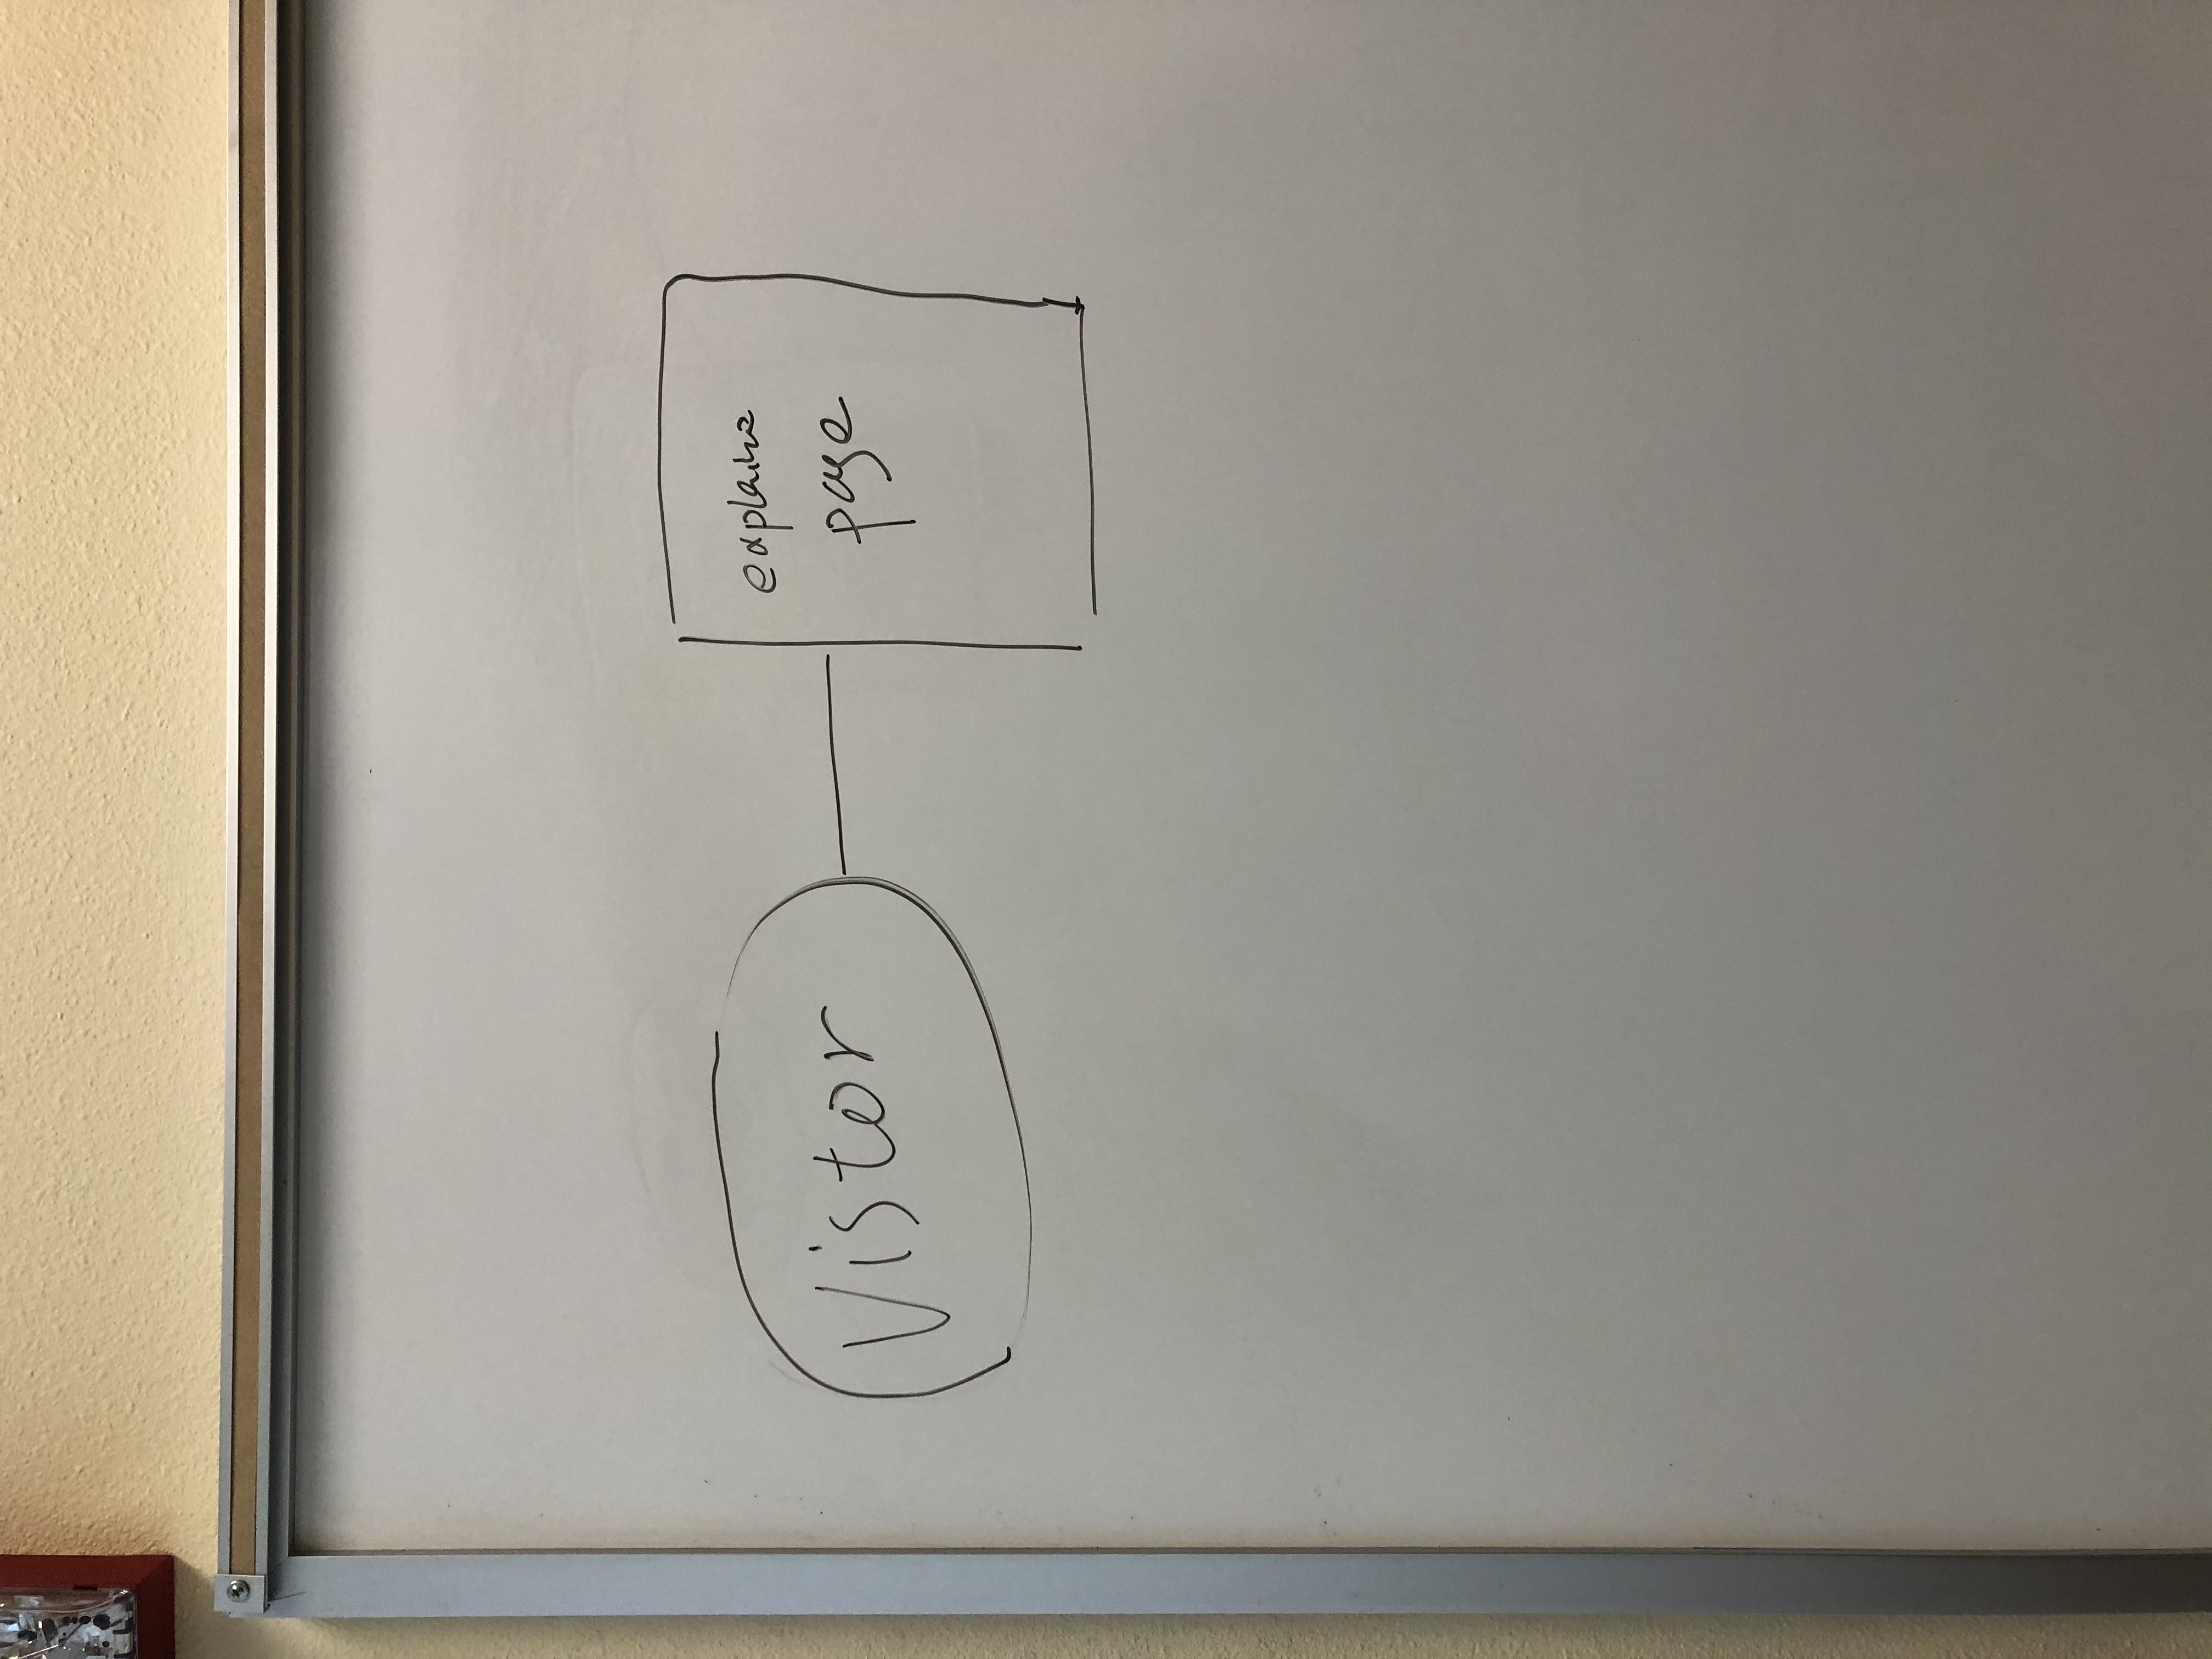 Vistor
explaine
page